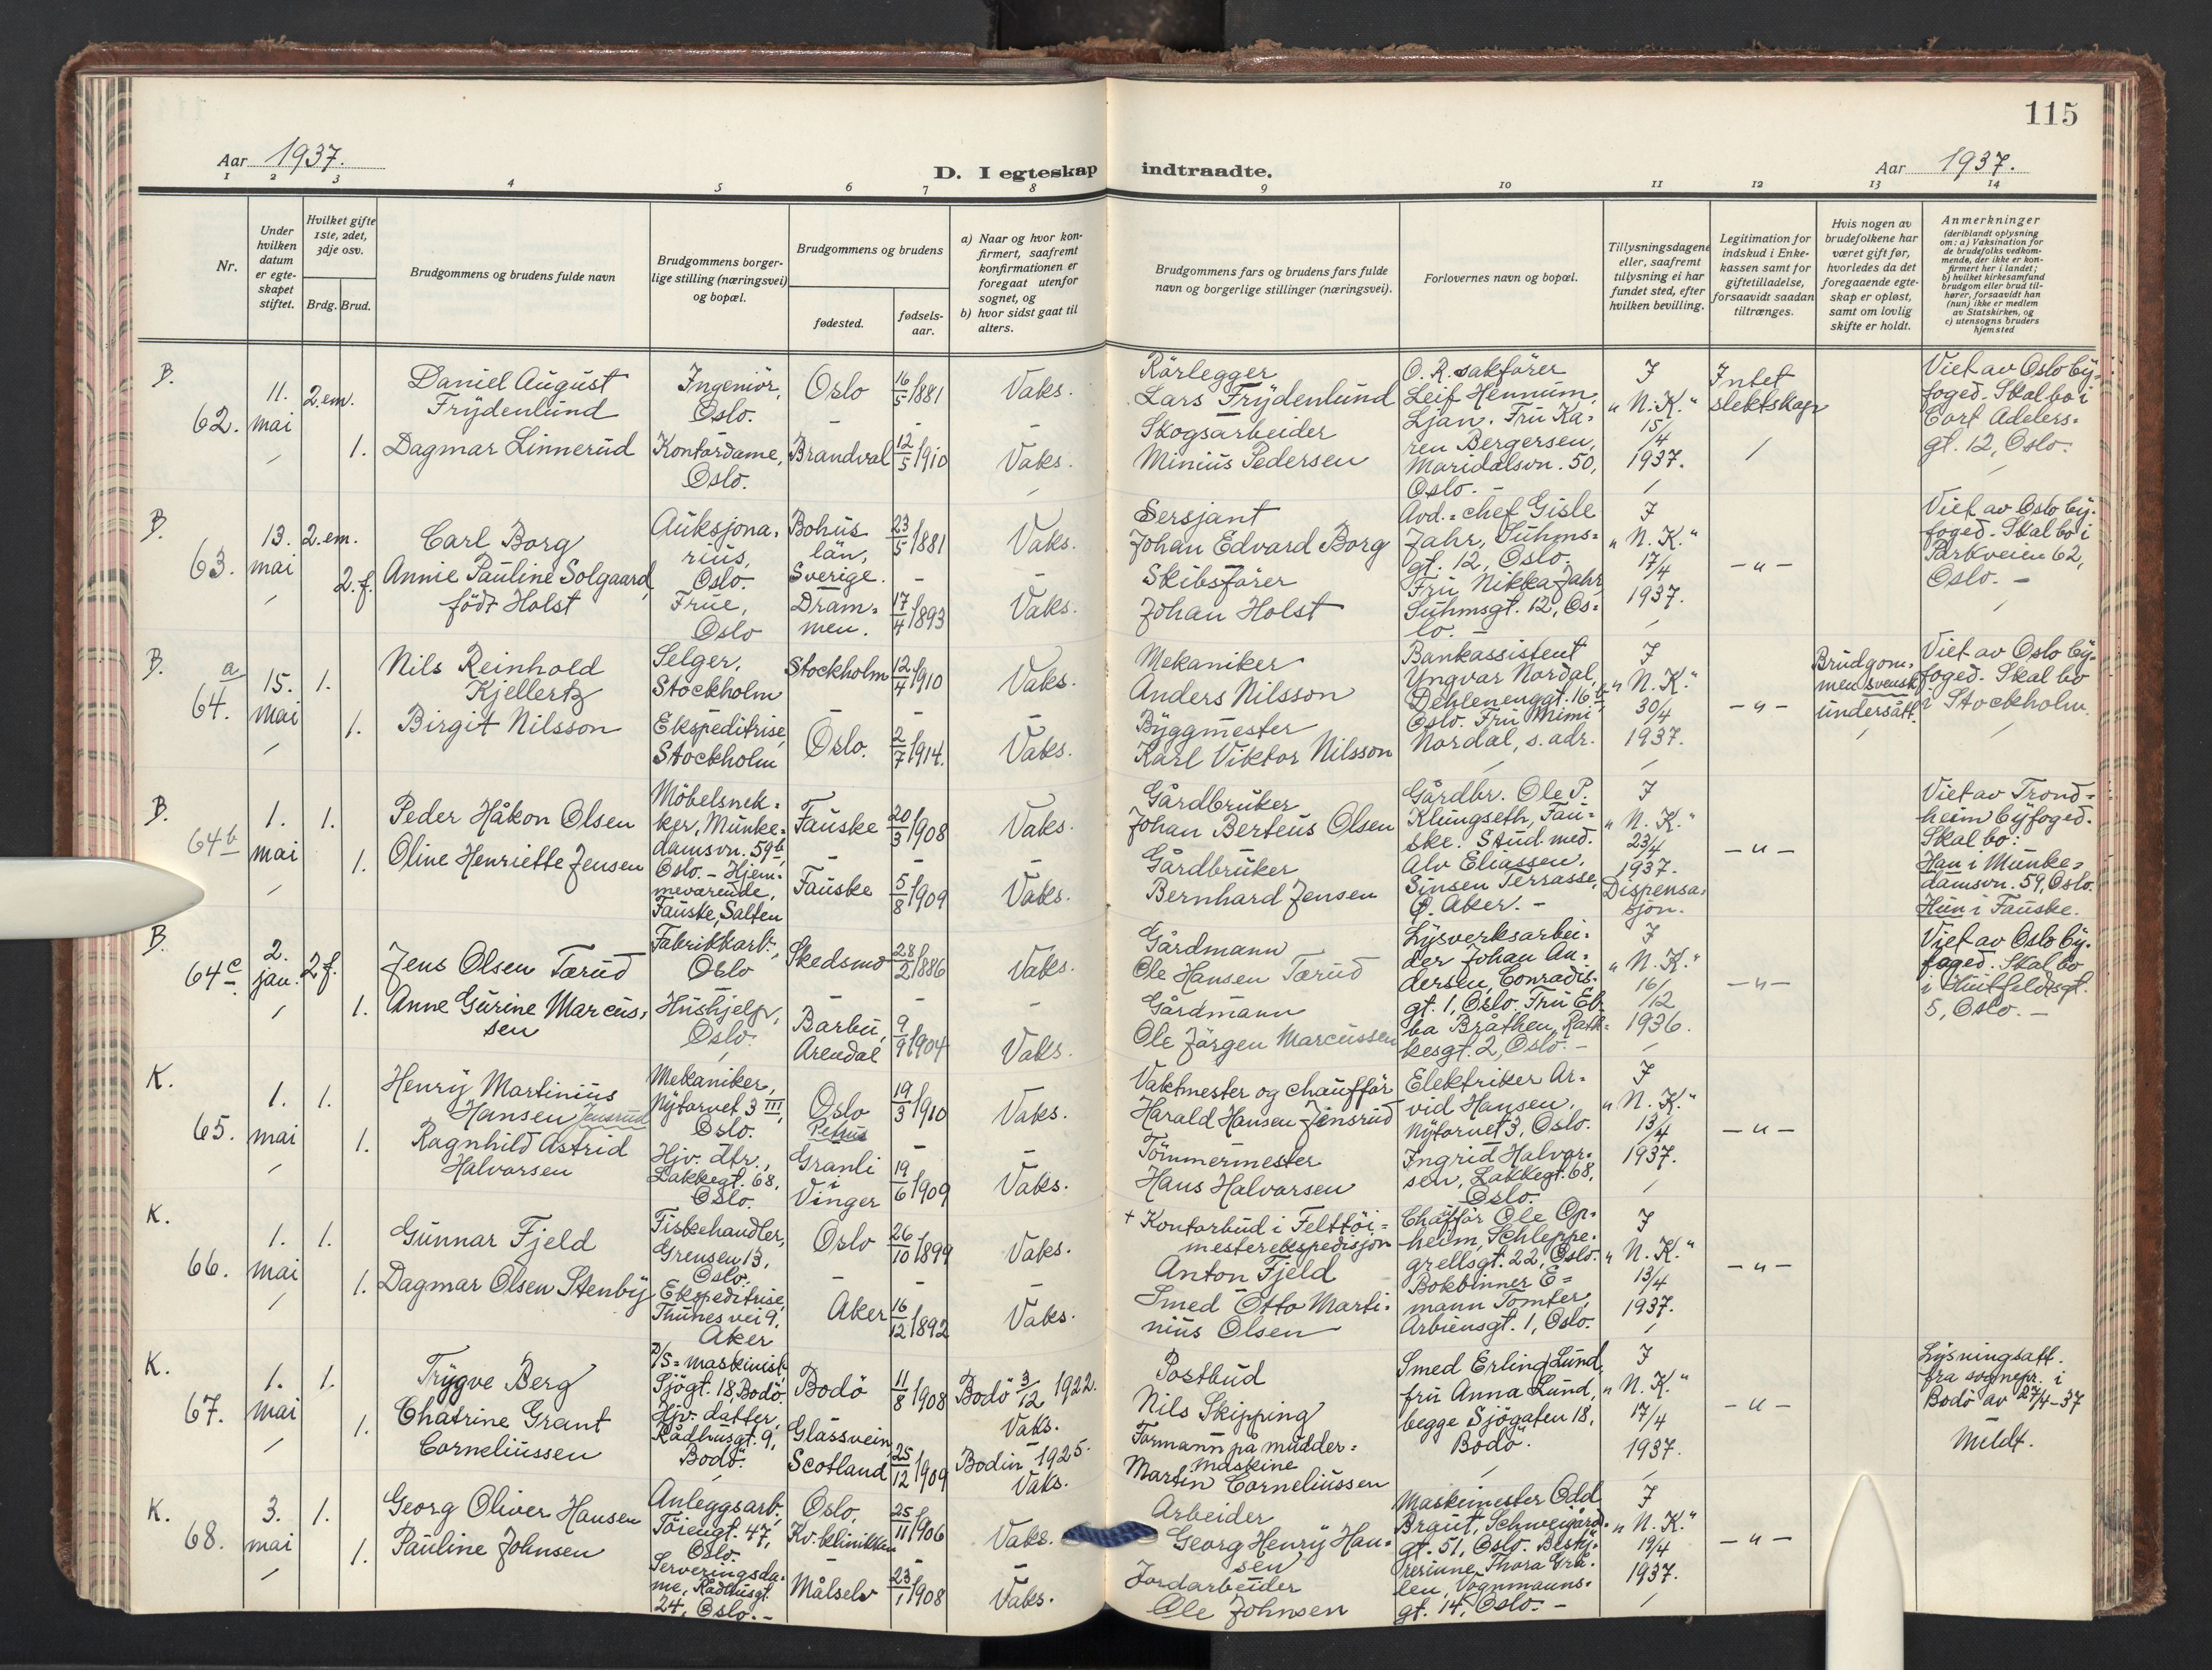 115
Aar 1937.
D. I egteskap indtraadte.
Aar 1937.
1 2 3 4 5 6 7 8 9 10 11 12 13 14
Nr.
Under hvilken datum er egteskapet stiftet.
Hvilket gifte 1ste, 2det, 3dje osv.
Brdg. Brud.
Brudgommens og brudens fulde navn
Brudgommens borgerlige stilling (næringsvei) og bopæl.
Brudgommens og brudens
fødested.
fødselsaar.
a) Naar og hvor konfirmert, saafremt konfirmationen er foregaat utenfor sognet, og
b) hvor sidst gaat til alters.
Brudgommens fars og brudens fars fulde navn og borgerlige stillinger (næringsvei).
Forlovernes navn og bopæl.
Tillysningsdagene eller, saafremt tillysning ei har fundet sted, efter hvilken bevilling.
Legitimation for indskud i Enkekassen samt for giftetilladelse, forsaavidt saadan tiltrænges.
Hvis nogen av brudefolkene har været gift før, hvorledes da det foregaaende egteskap er opløst, samt om lovlig skifte er holdt.
Anmerkninger
(deriblandt oplysning om: a) Vaksination for de brudefolks vedkommende, der ikke er konfirmert her i landet;
b) hvilket kirkesamfund brudgom eller brud tilhører, forsaavidt han (hun) ikke er medlem av Statskirken, og
c) utensogns bruders hjemsted
B.
62.
11. mai
2. em.
1.
Daniel August Frydenlund
Dagmar Linnerud
Ingeniør, Oslo.
Kontordame, Oslo.
Oslo
Brandval
16/5 1881
12/5 1910
Vaks.
Vaks.
Rørlegger
Lars Frydenlund
Skogsarbeider
Minius Pedersen
O. R. sakfører
Leif Hennum,
Ljan. Fru Ka-
ren Bergersen,
Maridalsvn. 50,
Oslo. -
I
"N. K."
15/4
1937.
Intet slektskap
Viet av Oslo by-
foged. Skal bo i
Cort Adelers-
gt. 12, Oslo.
B.
63.
13. mai
2. em.
2. f.
Carl Borg
Annie Pauline Solgaard,
födt Holst
Auksjona-
rius,
Oslo.
Frue,
Oslo
Bohus
län,
Sverige.
Dram-
men.
23/5 1881
17/4 1893
Vaks.
Vaks.
Sersjant
Johan Edvard Borg
Skibsfører
Johan Holst
Avd.-chef Gisle
Jahr, Suhms-
gt. 12, Oslo.
Fru Nikka Jahr,
Suhmsgt. 12, Os-
lo. -
I
"N. K."
17/4
1937.
- " -
Viet av Oslo by-
foged. Skal bo i
Parkveien 62,
Oslo. -
B.
64. a
15. mai
1.
1.
Nils Reinhold
Kjellertz
Birgit Nilsson
Selger,
Stockholm
Ekspeditrise,
Stockholm
Stockholm
Oslo.
12/4 1910
2/7 1914.
Vaks.
Vaks.
Mekaniker
Anders Nilsson
Byggmester
Karl Viktor Nilsson
Bankassistent
Yngvar Nordal,
Dehlenenggt. 16b,
Oslo. Fru Mimi
Nordal, s. adr.
I
"N. K."
30/4
1937.
- " -
Brudgom-
men svensk
undersått.
Viet av Oslo by-
foged. Skal bo
i Stockholm.
B.
64b
1. mai
1.
1.
Peder Håkon Olsen
Oline Henriette Jensen
Möbelsnek-
ker, Munke-
damsvn. 59b,
Oslo. - Hjem-
meværende,
Fauske, Salten
Fauske
Fauske
20/3 1908
5/8 1909
Vaks.
Vaks.
Gårdbruker
Johan Berteus Olsen
Gårdbruker
Bernhard Jensen
Gårdbr. Ole P.
Klungseth, Fau-
ske. Stud. med.
Alv Eliassen,
Sinsen Terrasse,
Ø. Aker. -
I
"N. K."
23/4
1937.
Dispensa-
sjon.
- " -
Viet av Trond-
heim byfoged.
Skal bo:
Han i Munke-
damsvn. 59, Oslo.
Hun i Fauske.
B.
64c
2. jan.
2 f.
1.
Jens Olsen Tærud
Anne Gurine Marcus-
sen
Fabrikkarb.,
Oslo
Hushjelp,
Oslo.
Skedsmo
Barbu,
Arendal
28/2 1886
9/9 1904
Vaks.
Vaks.
Gårdmann
Ole Hansen Tærud
Gårdmann
Ole Jørgen Marcussen
Lysverksarbei-
der Johan An-
dersen, Conradis-
gt. 1, Oslo. Fru Eb-
ba Bråthen, Rath-
kesgt. 2, Oslo. -
I
"N. K."
16/12
1936.
- " -
Viet av Oslo by-
foged. Skal bo
i Huitfeldtsgt.
5, Oslo. -
K.
65.
1. mai
1.
1.
Henry Martinius
Hansen Jensrud
Ragnhild Astrid
Halvorsen
Mekaniker,
Nytorvet 3 III,
Oslo.
Hjv. dtr.,
Lakkegt. 68,
Oslo.
Oslo
Granli
i
Vinger
19/3 1910
19/6 1909
Vaks.
Vaks.
Vaktmester og chauffør
Harald Hansen Jensrud
Tömmermester
Hans Halvorsen
Elektriker Ar-
vid Hansen,
Nytorvet 3, Oslo.
Ingrid Halvor-
sen, Lakkegt. 68,
Oslo.
I
"N. K."
13/4
1937.
- " -
K.
66.
1. mai
1.
1.
Gunnar Fjeld
Dagmar Olsen Stenby
Fiskehandler,
Grensen 13,
Oslo.
Ekspeditrise,
Thunes vei 9,
Aker
Oslo
Aker
26/10 1899
16/12 1892
Vaks.
Vaks.
+ Kontorbud i Felttöi-
mesterekspedisjon
Anton Fjeld
Smed Otto Marti-
nius Olsen
Chauffør Ole Op-
heim, Schleppe-
grellsgt. 22, Oslo.
Bokbinner E-
mann Tomter,
Arbiensgt. 1, Oslo.
I
"N. K."
13/4
1937.
- " -
K.
67.
1. mai
1.
1.
Trygve Berg
Chatrine Grant
Corneliussen
D/S-maskinist,
Sjögt. 18, Bodö.
Hjv. datter,
Rådhusgt. 9,
Bodö.
Bodö
Glassvein
Scotland
11/8 1908
25/12 1909
Bodö 3/12 1922.
Vaks.
Bodin 1925.
Vaks.
Postbud
Nils Skipping
Formann på mudder-
maskine
Martin Corneliussen
Smed Erling Lund,
fru Anna Lund,
begge Sjögaten 18,
Bodö.
I
"N. K."
17/4
1937.
- " -
Lysningsatt.
fra sognepr. i
Bodö av 27/4-37
Meldt.
K.
68.
3. mai
1.
1.
Georg Oliver Hansen
Pauline Johnsen
Anleggsarb.,
Töiengt. 47,
Oslo.
Serveringsda-
me, Rådhusgt.
24, Oslo. -
Oslo,
Kv. klinikken
Målselv
25/11 1906
23/1 1908
Vaks.
Vaks.
Arbeider
Georg Henry Han-
sen
Jordarbeider
Ole Johnsen
Maskinmester Odd
Braut, Schweigård-
gt. 51, Oslo. Besty-
rerinne Thora
Vognmanns-
gt. 14, Oslo. -
I
"N. K."
19/4
1937.
- " -